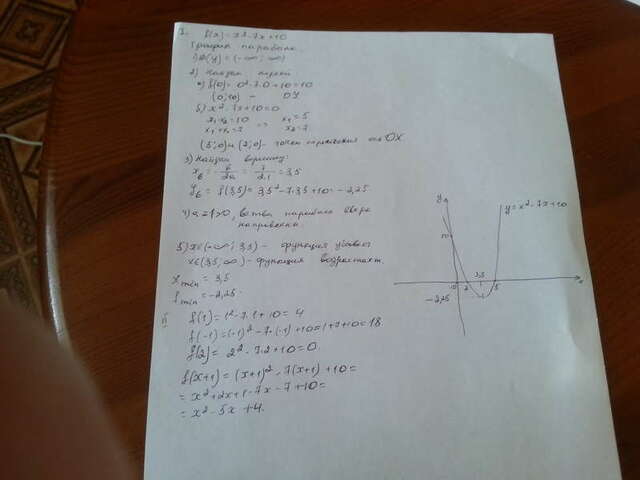 I. f(x) = x²-7x+10
График парабола.
1) D(y) = (-∞; ∞)
2) Найдём
a) f(0) = 0²-7·0+10=10
(0;10) - OY
б) x²-7x+10=0
x₁·x₂=10 => x₁=5
x₁+x₂=7 x₂=2
(5;0) и (2;0) - точки пересечения OX
3) Найдём вершину
x_в = -b/2a = 7/2·1 = 3,5
y_в = f(3,5) = 3,5²-7·3,5+10 = -2,25
4) a=1>0, ветви параболы вверх
направлены.
5) x∈(-∞; 3,5) - функция убывает
x∈(3,5; ∞) - функция возрастает.
x min = 3,5
f min = -2,25
II f(1) = 1²-7·1+10 = 4
f(-1) = (-1)²-7·(-1)+10 = 1+7+10 = 18
f(2) = 2²-7·2+10=0.
f(x+1) = (x+1)²-7(x+1)+10=
= x²+2x+1-7x-7+10=
= x²-5x+4.
y
y=x²-7x+10
10
3,5
0 2 5 x
-2,25